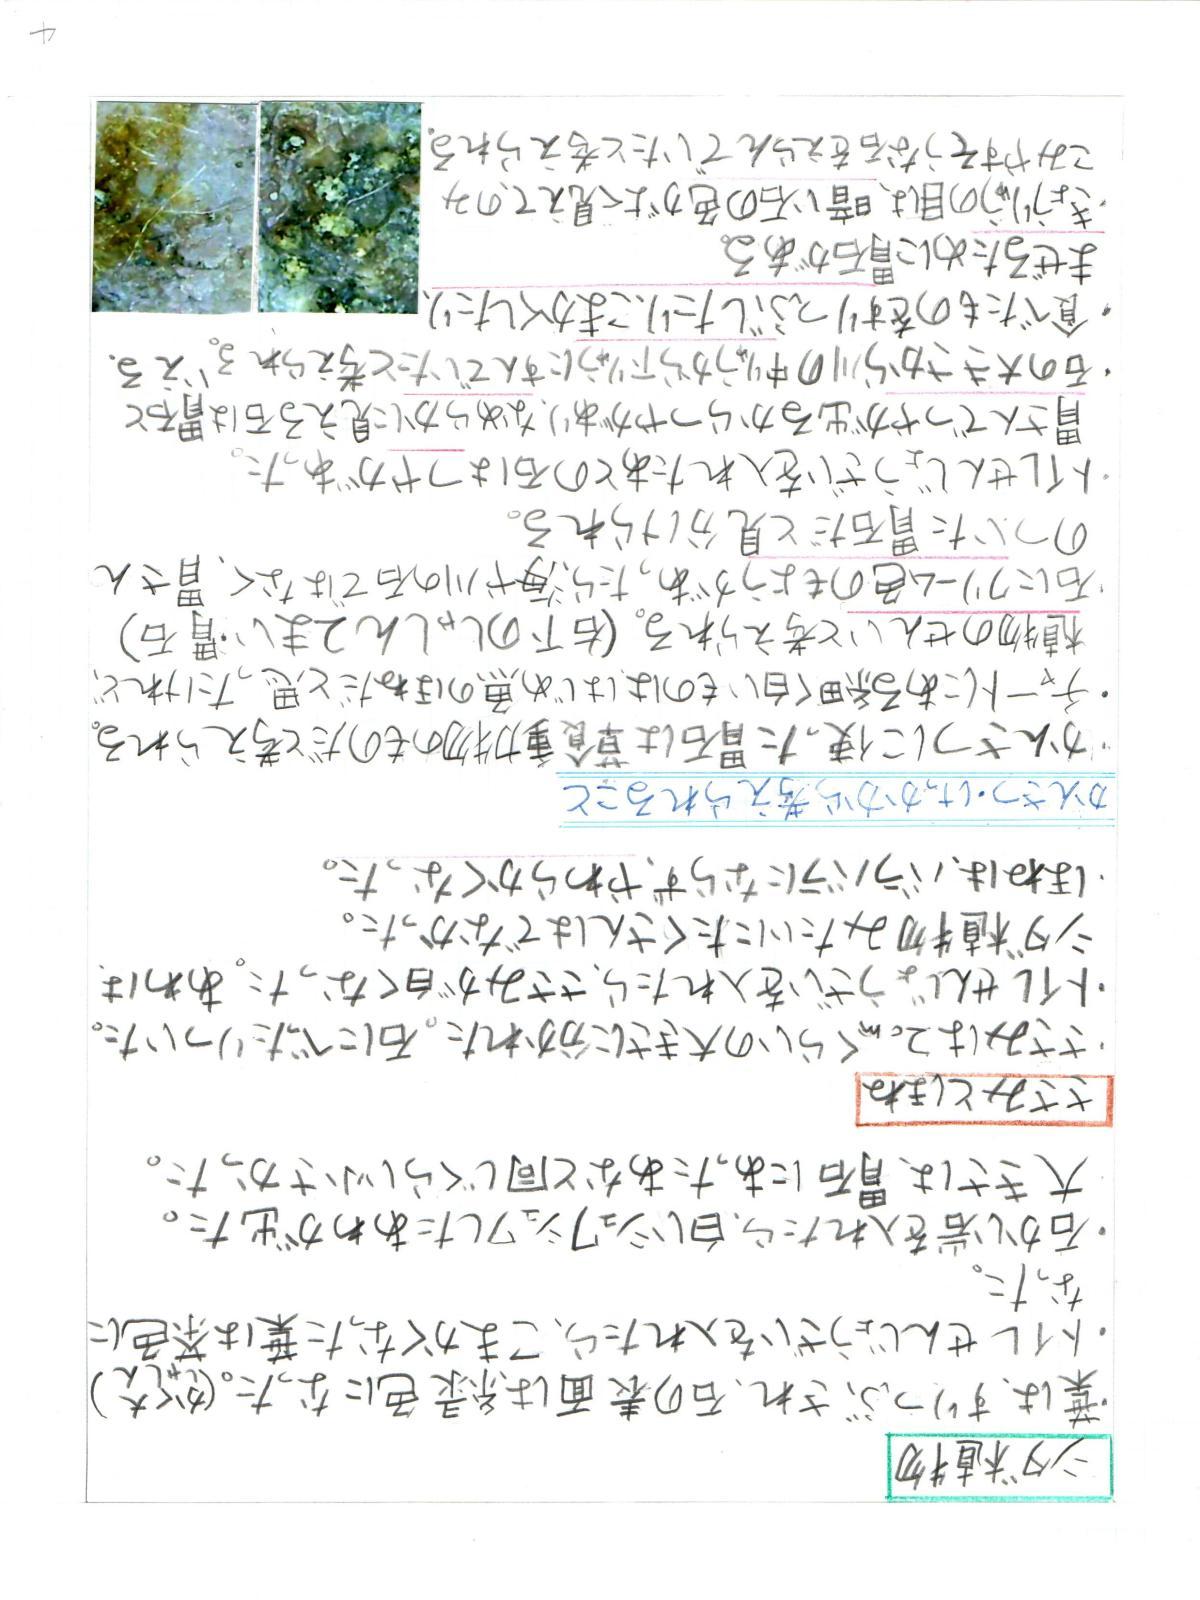 シダ植物
・葉は、すりつぶされ、石の表面は緑色になった。(かく大しゃしん)
・トイレせんじょうざいを入れたら、こまかくなった葉は茶色に
なった。
・石かい岩を入れたら、白いシュワシュワしたあわが出た。
大きさは、胃石にあったあなと同じくらい小さかった。
ささみとほね
・ささみは2cmくらいの大きさに分かれた。石にべったりついた。
・トイレせんじょうざいを入れたら、ささみが白くなった。あわは、
シダ植物みたいにたくさんはでなかった。
・ほねは、バラバラにならず、やわらかくなった。
かんさつ・けっかから考えられること
・かんさつに使った胃石は草食動物のものだと考えられる。
・チャートにある細く白いものは、はじめ魚のほねだと思ったけれど、
植物のせんいと考えられる。(右下のしゃしん2まい・胃石)
・石にクリーム色のもようがあったら、海や川の石ではなく、胃さん
のついた胃石だと見分けられる。
・トイレせんじょうざいを入れたあとの石はつやがあった。
胃さんでつやが出るからつやがあり、なめらかに見える石は胃石と
いえる。
・石の大きさから川の中りゅうから下りゅうにすんでいたと考えられる。
・食べたものをすりつぶしたり、こまかくしたり、
まぜるために胃石がある。
・きょうりゅうの目は、暗い石の色がよく見えてのみ
こみやすそうな石をえらんでいたと考えられる。
4